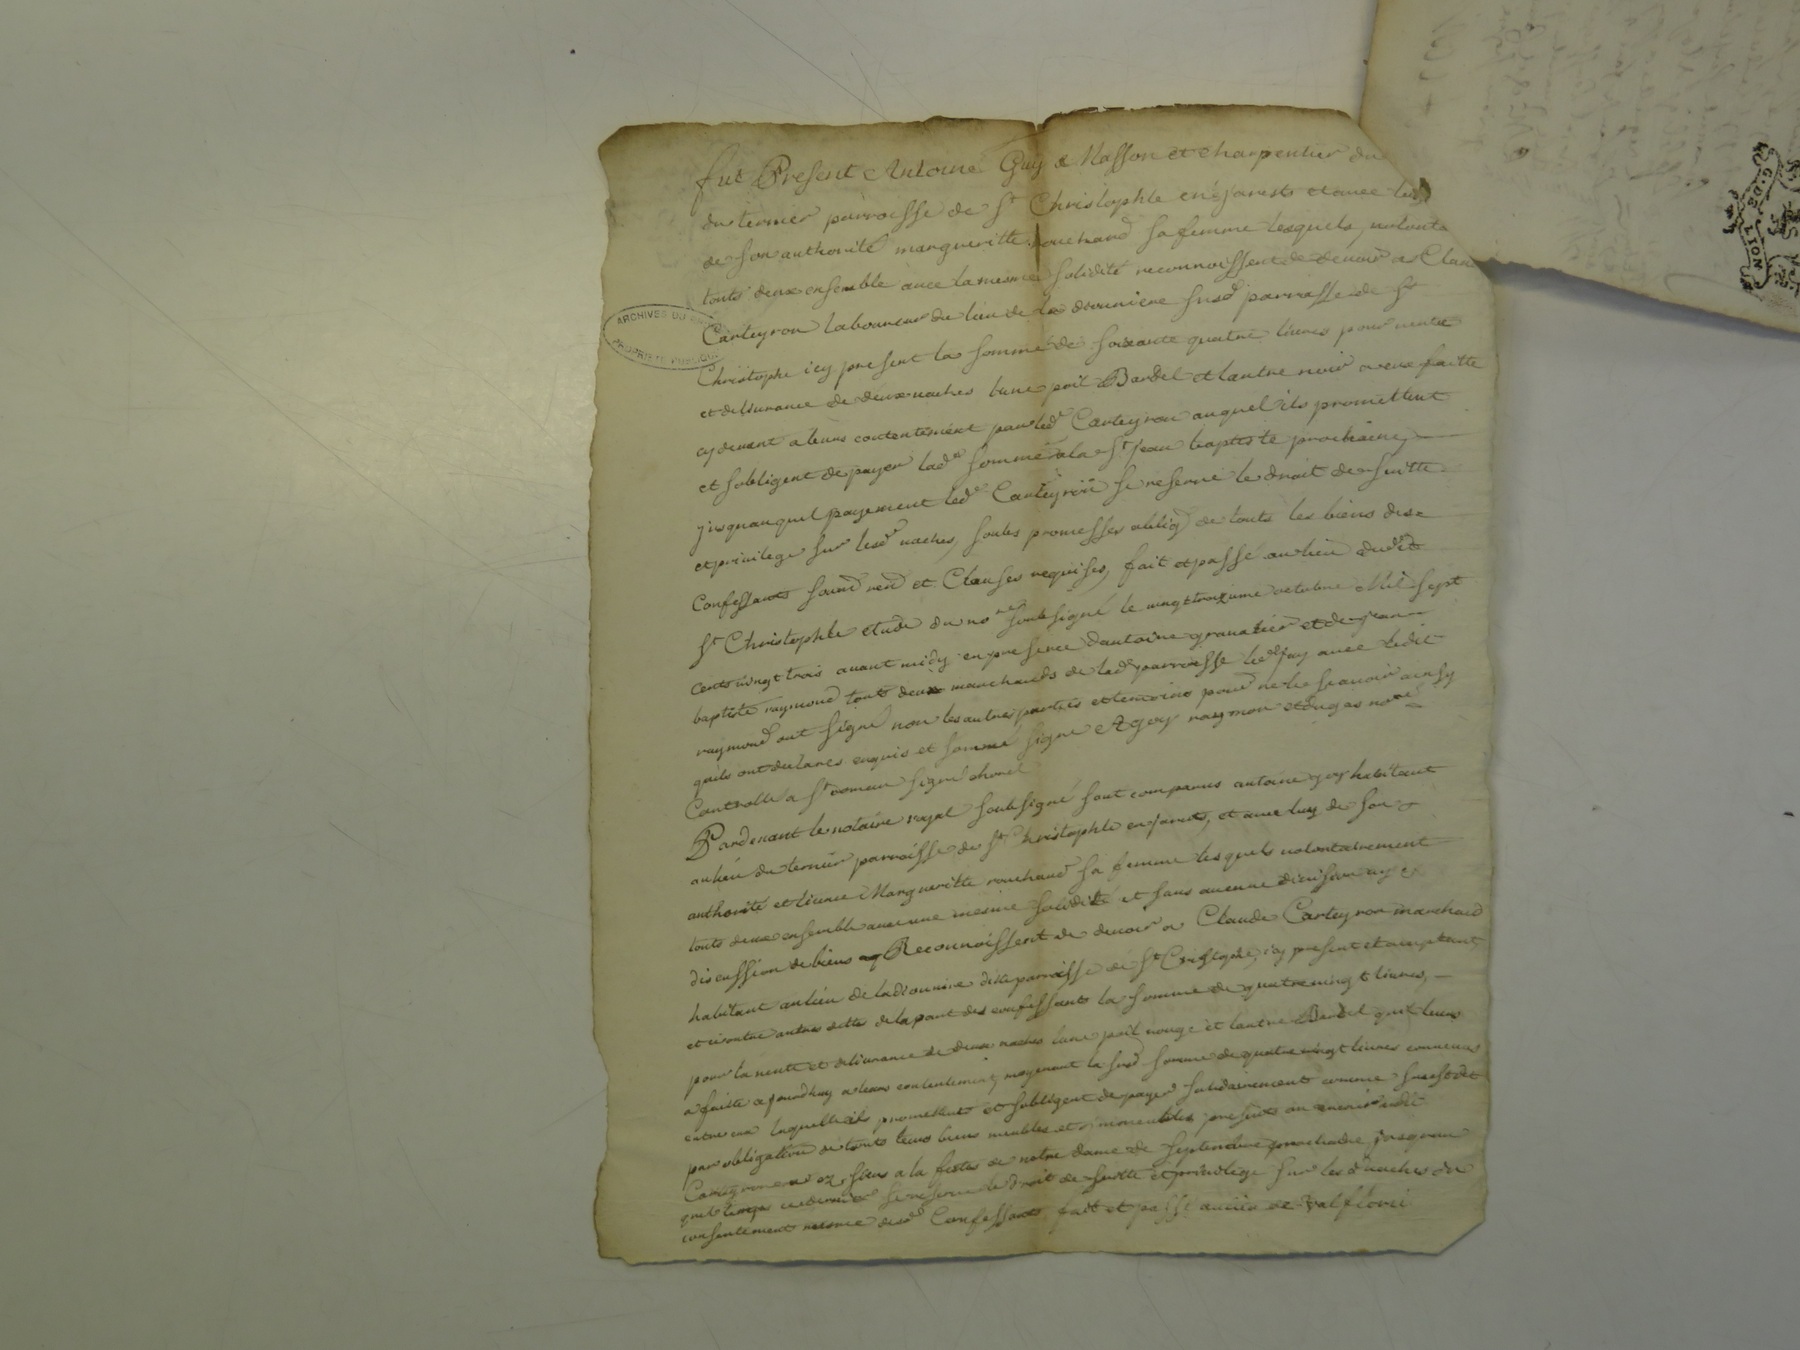 fut Present Antoine Guy Masson et charpentier du
du ternier parroisse de St Christophle en Jarests et avec luy
de son authorité margueritte rouchand sa femme lesquels, volonta
touts deux ensemble avec la mesme solidité reconnoissent de devoir a Clau
Carteyron laboureur du lieu de la dieuniere susd parroisse de St
Christophe icy present la somme de soixante quatre livres pour vente
et delivrance de deux vaches lune poil Bardel et lautre noir a eux faitte
cy devant a leurs contentement par led Carteyron auquel ils promettent
et sobligent de payer lade somme a la St Jean baptiste prochaine,
jusquauquel payement led Carteyron se reserve le droit de suitte
et privilege sur lesd vaches, soubs promesses obligõ de touts les biens des
Confessants soumõ renõ et Clauses requises, fait et passé au lieu dudit
St Christophle etude du nore soubsigné le vingttroizieme octobre Mil sept
cents vingt trois avant midy en presence dantoine granatier et de jean
baptiste raymond touts deux marchands de lade parroisse led Guy avec ledit
raymond ont signé non les autres parties et temoins pour ne le scavoir ainsy
quils ont declares enquis et sommé signe A guy raymon et dugas nore
Controlle a St romain signé
Pardevant le notaire royal soubsigné sont comparus antoine guy habitant
au lieu du ternier parroisse de St Christophle en Jarests, et avec luy de son
authorité et licence Margueritte rouchand sa femme lesquels volontairement
touts deux ensemble avec une mesme solidité et sans aucune division ny
discussion de biens Reconnoissent de devoir a Claude Carteyron marchand
habitant au lieu de la dieuniere dite parroisse de St Cristophe, icy present et acceptant,
et outre autres dettes de la part des confessants la somme de quatrevingt livres,
pour la vente et delivrance de deux vaches lune poil rouge et lautre Bardel quil leurs
a faitte ce jourdhuy a leurs contentement, moyenant la susd somme de quatre vingt livres convenus
entre eux laquelle ils promettent et sobligent de payer solidairement comme susest dit
par obligation de touts leurs biens meubles et immeubles presents ou avenir audit
Carteyron ou es siens a la feste de notre dame de septembre prochaine jusquau
quel temps ce dernier se reserve le droit de suitte et privilege sur les d vaches du
consentement mesme desd Confessants, fait et passé au lieu de valfleurie
ARCHIVES DU
PROPRIETE PUBLIQUE
G. DE
LION